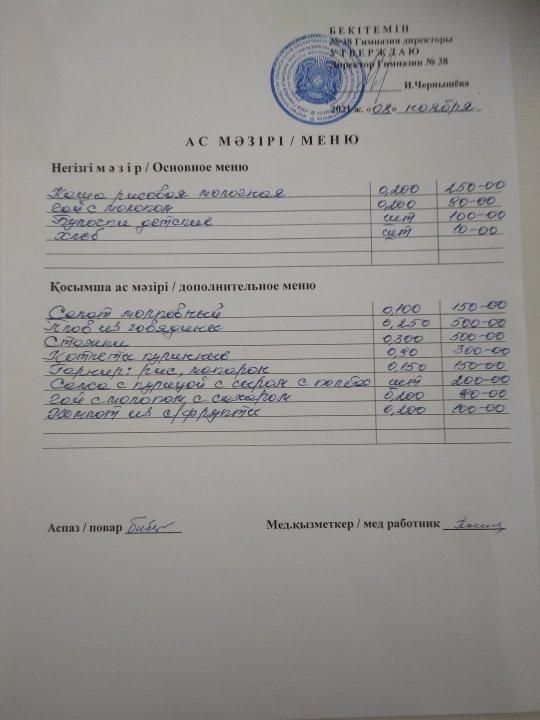 БЕКІТЕМІН
№ 38 Гимназия директоры
УТВЕРЖДАЮ
Директор Гимназии № 38
И.Чернышёва
2021 ж. «08» ноября
АС МӘЗІРІ / МЕНЮ
Негізгі мәзір / Основное меню
Каша рисовая молочная 0,200 250-00
Чай с молоком 0,200 80-00
Булочки детские шт 100-00
Хлеб шт 10-00
Қосымша ас мәзірі / дополнительное меню
Салат морковный 0,100 150-00
Плов из говядины 0,250 500-00
0,300 500-00
Котлеты куриные 0,90 300-00
Гарнир: рис, макарон 0,150 150-00
с курицой с сыром с колбас шт 200-00
Чай с молоком, с сахаром 0,200 80-00
Компот из с/фрукты 0,200 100-00
Аспаз / повар
Мед.қызметкер / мед работник